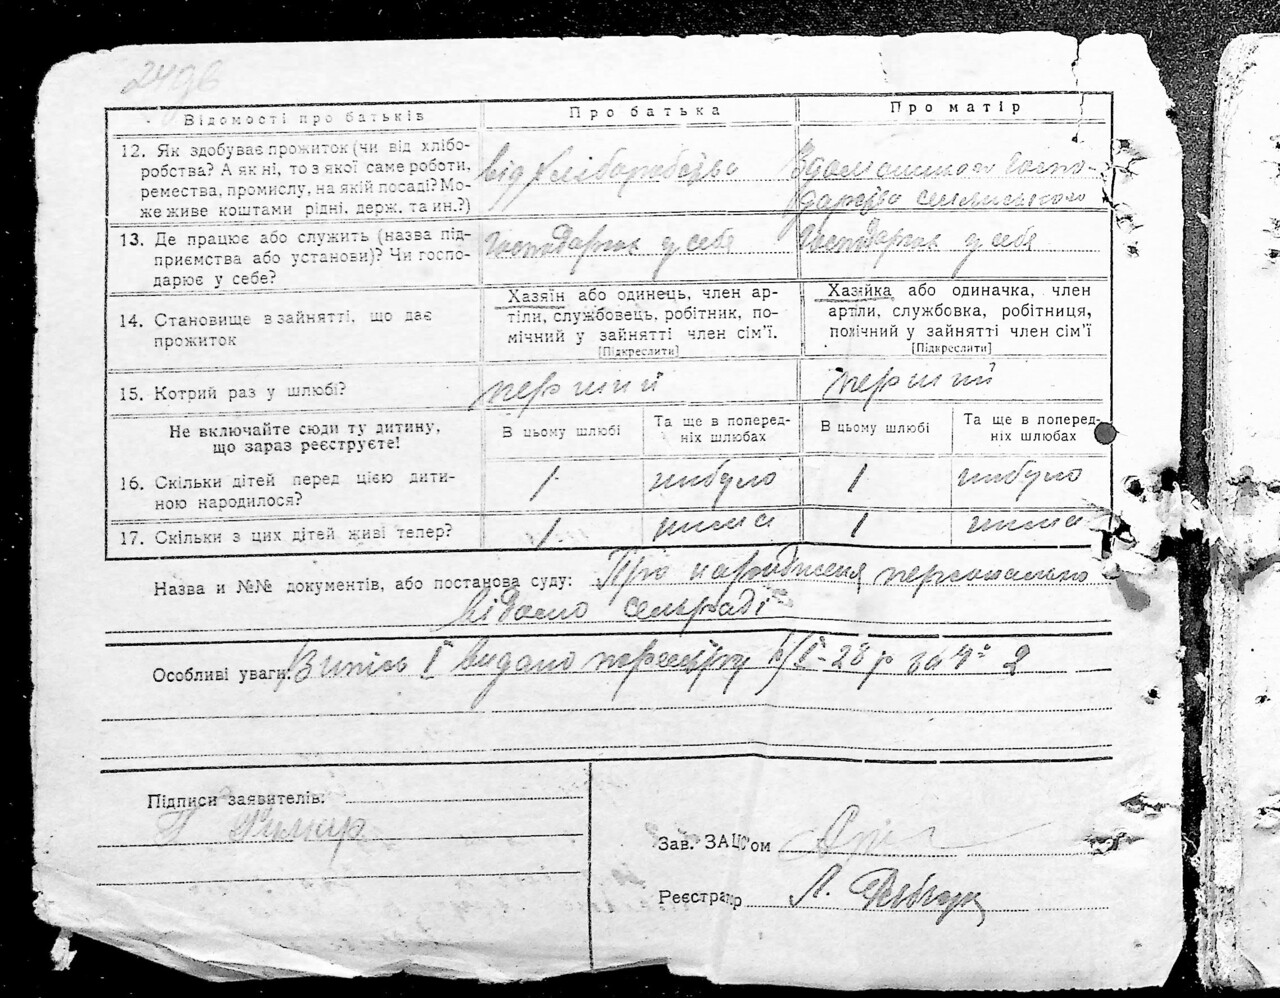 Відомості про батьків Про батька Про матір
12. Як здобуває прожиток (чи від хлібо-
робства? А як ні, то з якої саме роботи,
ремества, промислу, на якій посаді? Мо-
же живе коштами рідні, держ. та ин.?)
від хліборобства
З домашнього госпо-
дарства сільського
13. Де працює або служить (назва під-
приємства або установи)? Чи госпо-
дарює у себе?
Господарює у себе
Господарює у себе
14. Становище в зайнятті, що дає
прожиток
Хазяїн або одинець, член ар-
тіли, службовець, робітник, по-
мічний у зайнятті член сім'ї.
[Підкреслити]
Хазяйка або одиначка, член
артіли, службовка, робітниця,
помічний у зайнятті член сім'ї
[Підкреслити]
15. Котрий раз у шлюбі? перший перший
Не включайте сюди ту дитину,
що зараз реєструєте!
В цьому шлюбі
Та ще в поперед-
ніх шлюбах
В цьому шлюбі
Та ще в поперед-
ніх шлюбах
16. Скільки дітей перед цією дити-
ною народилося?
1 небуло 1 небуло
17. Скільки з цих дітей живі тепер? 1 нема 1 нема
Назва и №№ документів, або постанова суду: Про народження персонально
відомо сельраді
Особливі уваги: Випис І видано 28 р за № 2
Підписи заявителів:
Зав. ЗАЦС'ом
Реєстратор Л.